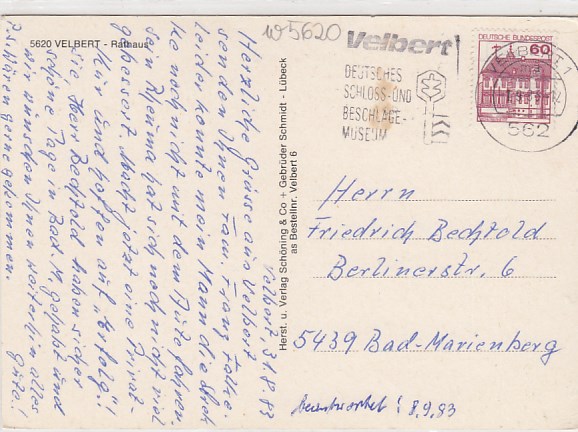 5620 VELBERT - Rathaus
w5620
Velbert
DEUTSCHES
SCHLOSS- UND
BESCHLÄGE-
MUSEUM
DEUTSCHE BUNDESPOST
60
VELBERT 1
562
Velbert, 31.8.83
Herzliche Grüsse aus Velbert
senden Ihnen Fam. Franz
Leider konnte mein Mann die Strek
ke noch nicht mit dem Auto fahren.
Sein Rheuma hat sich noch nicht viel
gebessert. Macht jetzt eine Privat-
Kur und hoffen auf "Erfolg"!
Sie Herr Bechtold haben sicher
schöne Tage in Bad-M. gehabt und
wir wünschen Ihnen weiterhin alles
Gute!
gerne genommen.
Herst. u. Verlag Schöning & Co + Gebrüder Schmidt - Lübeck
as Bestellnr. Velbert 6
Herrn
Friedrich Bechtold
Berlinerstr. 6
5439 Bad-Marienberg
beantwortet! 8.9.83